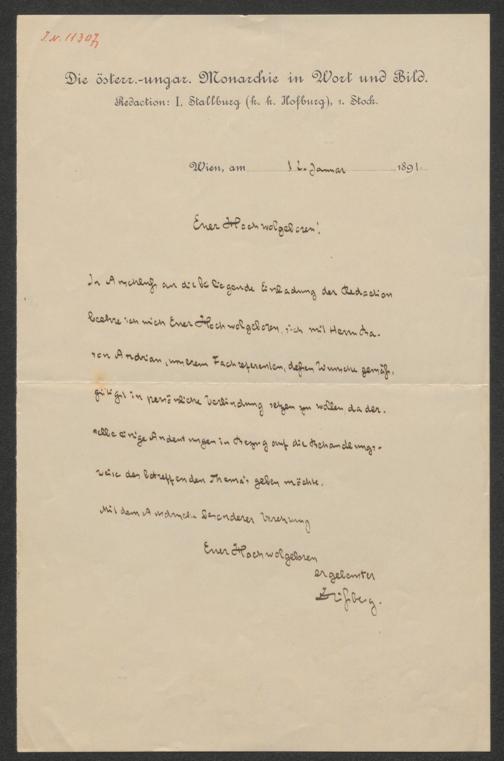 J.N. 11307
Die österr.-ungar. Monarchie in Wort und Bild.
Redaction: I. Stallburg (k. k. Hofburg), 1. Stock.
Wien, am 12. Januar 1891.
Euer Hochwolgeboren!
In Anschluss an die beiliegende Einladung der Redaction
beehre ich mich Euer Hochwolgeboren, sich mit Herrn Ba-
ron Andrian, unserem Fachreferenten, dessen Wunsche gemäß,
gütigst in persönliche Verbindung setzen zu wollen da der-
selbe einige Andeutungen in Bezug auf die Behandlungs-
weise des betreffenden Thema's geben möchte.
Mit dem Ausdrucke besonderer Verehrung
Euer Hochwolgeboren
ergebenster